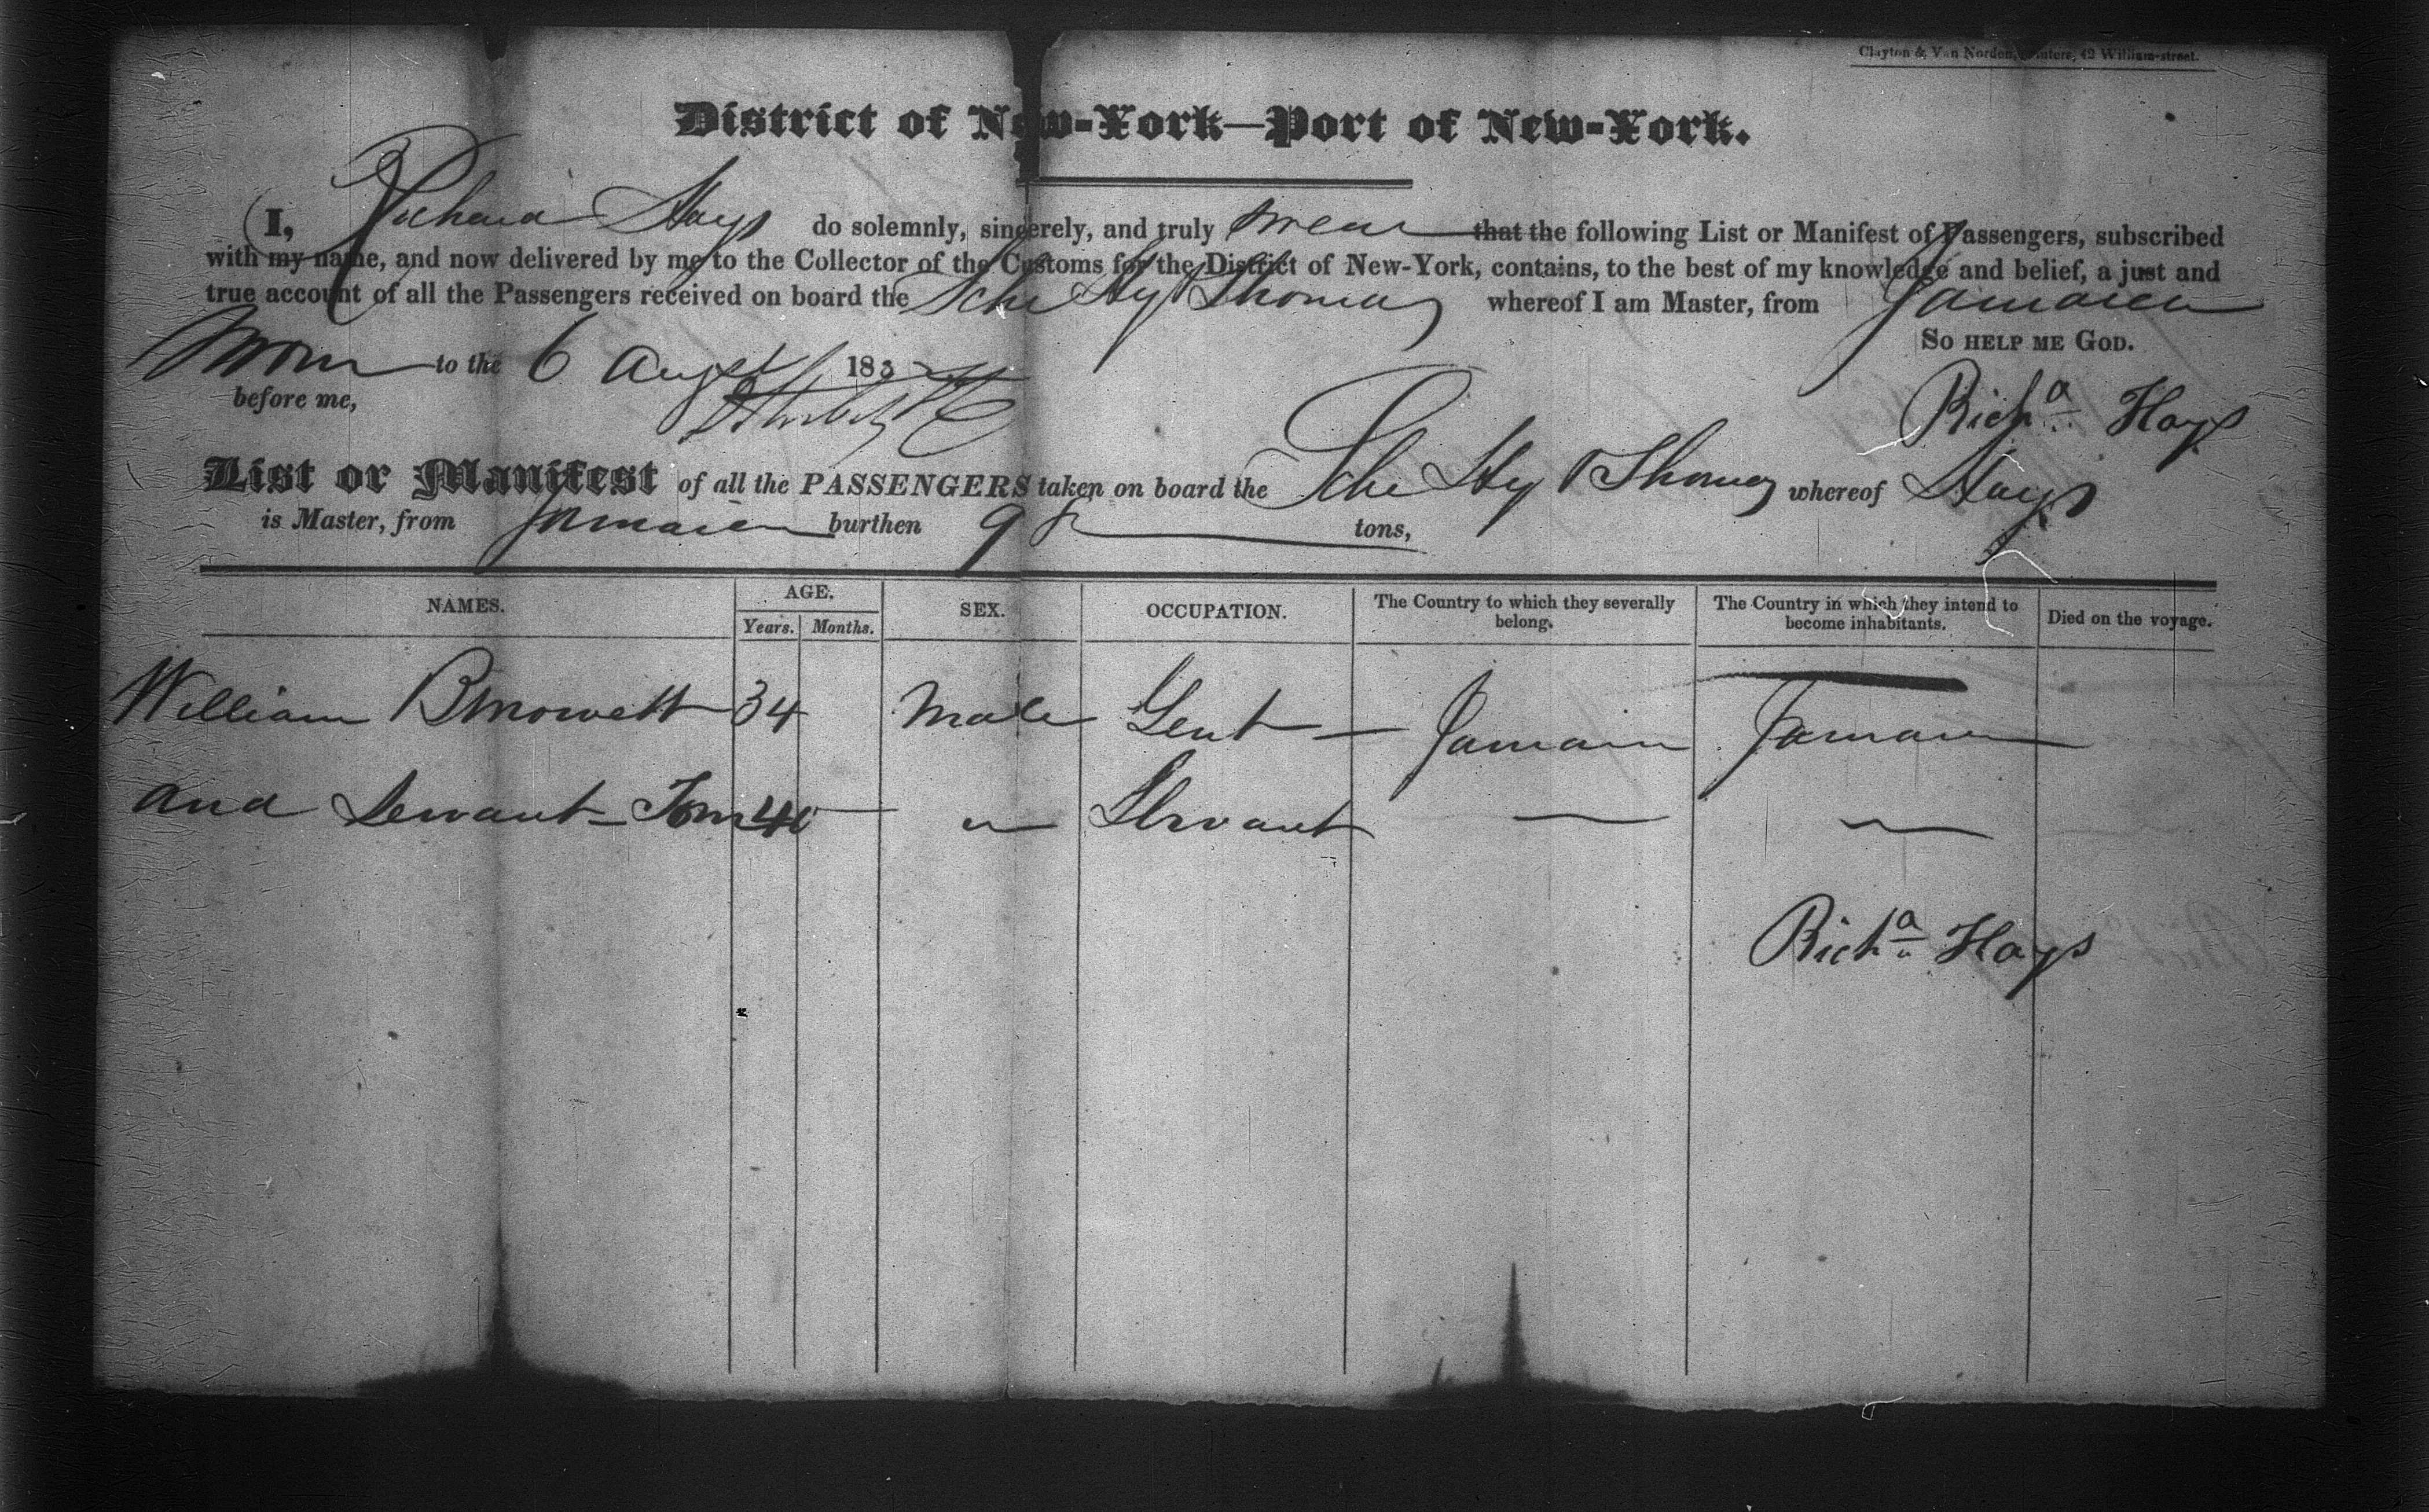 Clayton & Van Norden, Printers, 42 William-street.
District of New-York—Port of New-York.
I, Richard Hays do solemnly, sincerely, and truly swear that the following List or Manifest of Passengers, subscribed
with my name, and now delivered by me to the Collector of the Customs for the District of New-York, contains, to the best of my knowledge and belief, a just and
true account of all the Passengers received on board the Schr Hy Thomas whereof I am Master, from Jamaica
So HELP ME GOD.
Sworn to the 6 August 183
before me,
Richd Hays
List or Manifest of all the PASSENGERS taken on board the Schr Hy Thomas whereof Hays
is Master, from Jamaica burthen 98 tons,
NAMES. AGE. SEX. OCCUPATION. The Country to which they severally belong. The Country in which they intend to become inhabitants. Died on the voyage.
Years. Months.
William 34 Male Gent — Jamaica Jamaica
and Servant - Tom 40 — " Servant — —
Richd Hays